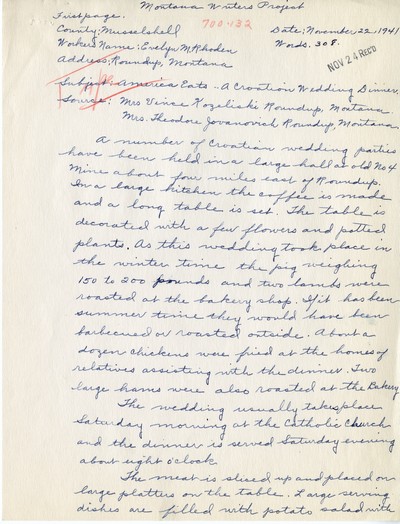 Montana Writers Project
First page.
700-132
County: Musselshell
Date: November 22, 1941
Workers Name: Evelyn M Rhoden
Words. 308.
Address: Roundup, Montana
NOV 24 REC'D
Subject: America Eats - A Croatian Wedding Dinner.
Source: Mrs Vince Kozeliski Roundup, Montana.
Mrs. Theodore Jovanovich Roundup, Montana
A number of Croatian wedding parties
have been held in a large hall at old No 4
Mine about four miles east of Roundup.
In a large kitchen the coffee is made
and a long table is set. The table is
decorated with a few flowers and potted
plants. As this wedding took place in
the winter time the pig weighing
150 to 200 pounds and two lambs were
roasted at the bakery shop. If it has been
summer time they would have been
barbecued or roasted outside. About a
dozen chickens were fried at the homes of
relatives assisting with the dinner. Two
large hams were also roasted at the Bakery.
The wedding usually takes place
Saturday morning at the Catholic Church
and the dinner is served Saturday evening
about eight o'clock.
The meat is sliced up and placed on
large platters on the table. Large serving
dishes are filled with potato salad with